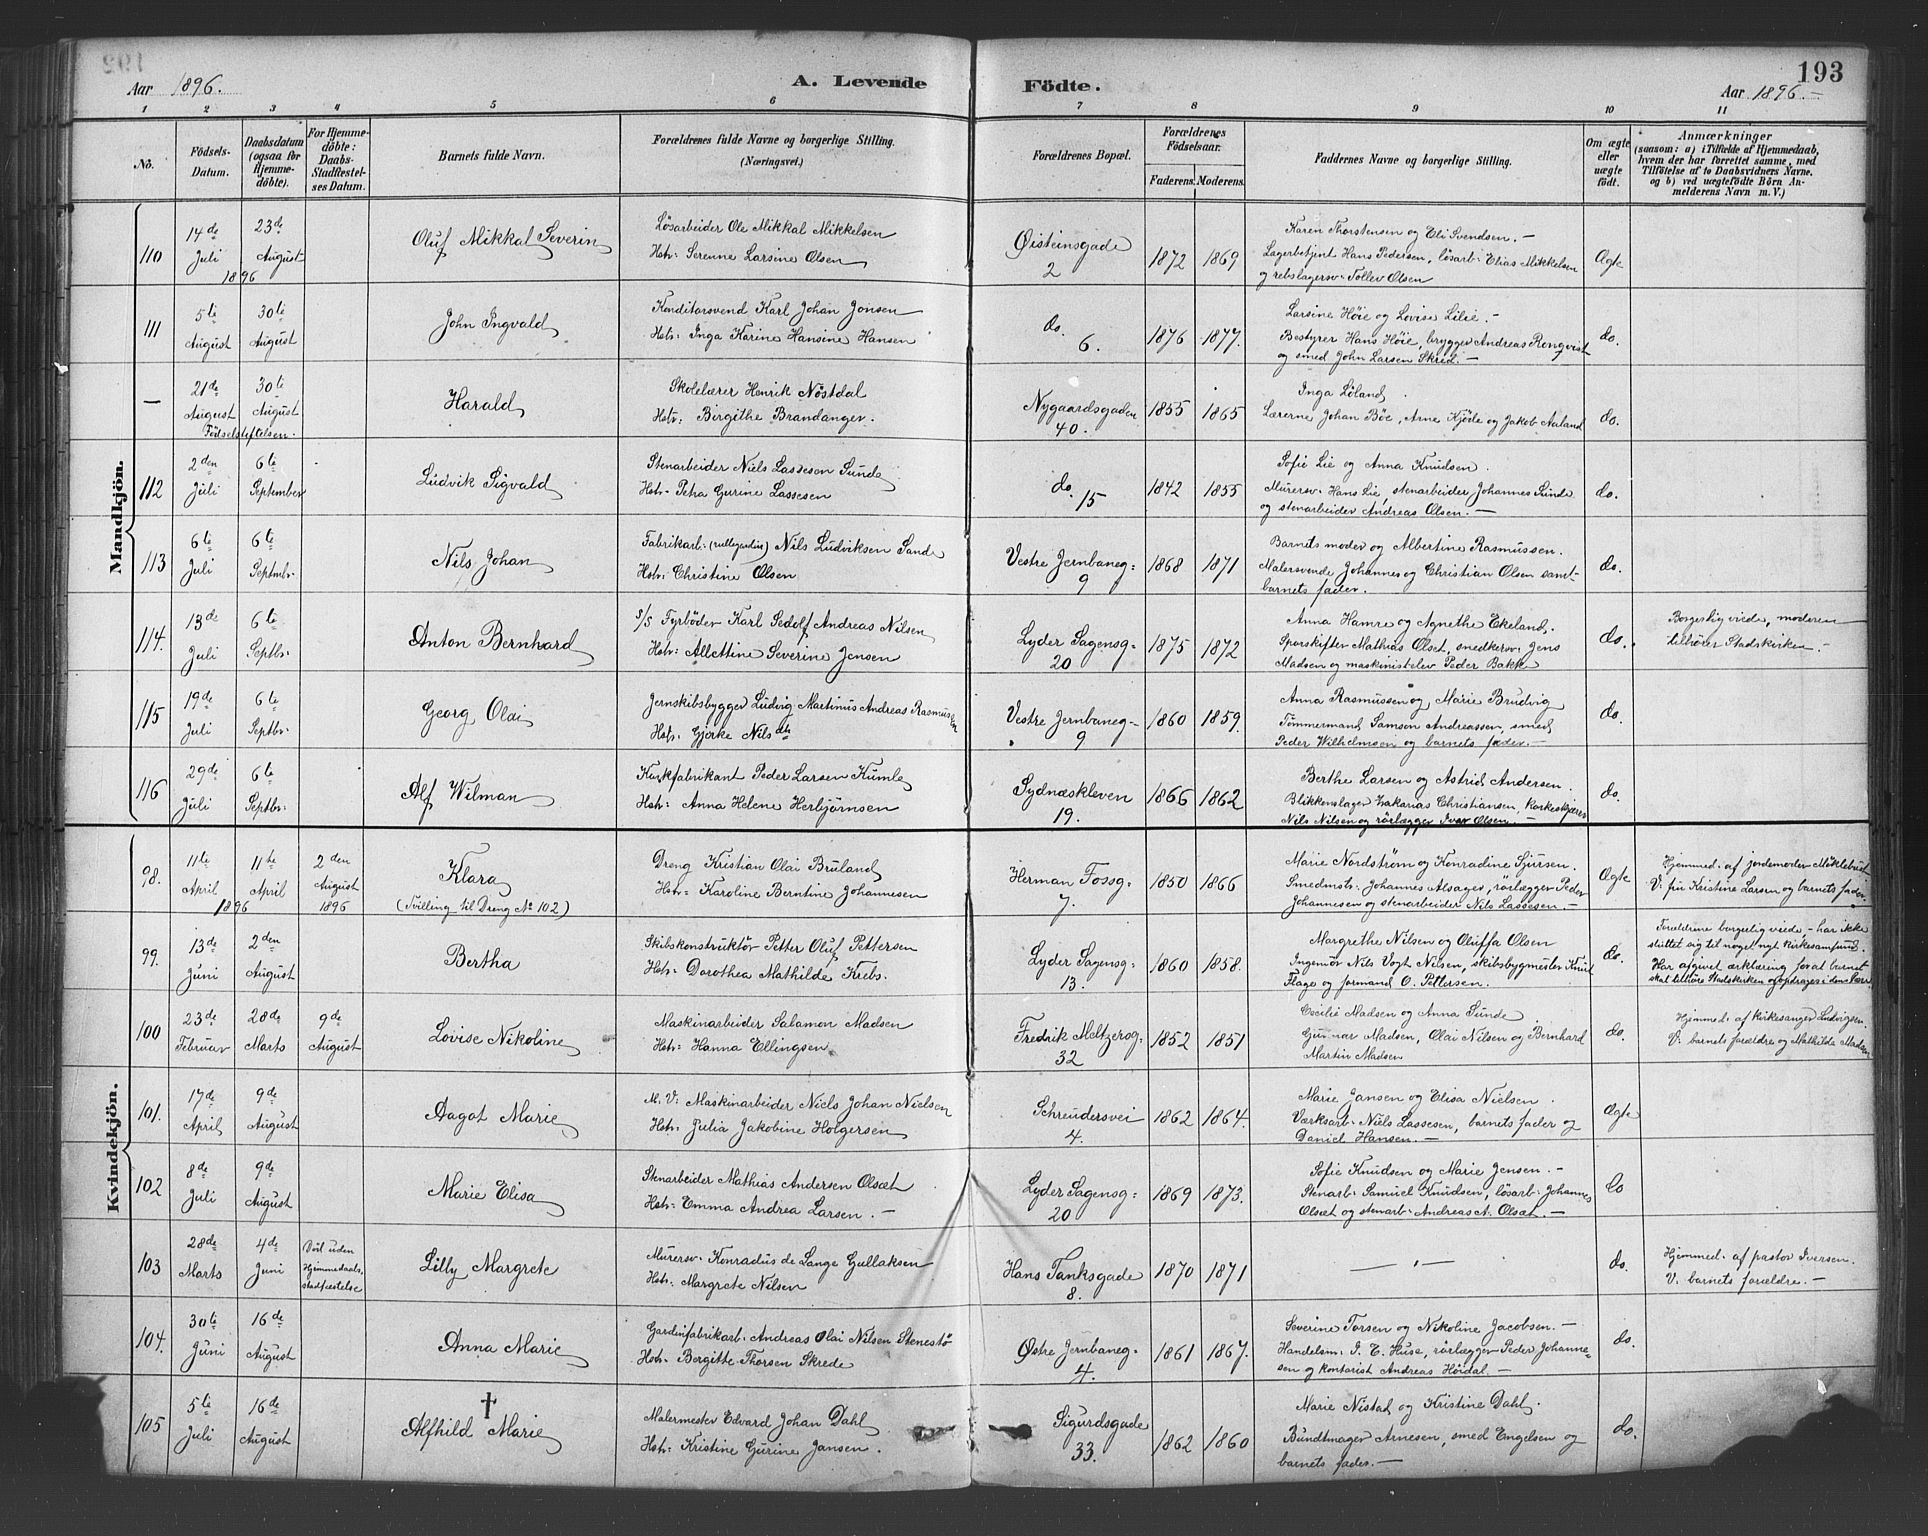 193
Aar 1896.
A. Levende Födte.
Aar 1896.—
1 2 3 4 5 6 7 8 9 10 11
No.
Födsels-Datum.
Daabsdatum (ogsaa for Hjemmedöbte).
For Hjemmedöbte: Daabs-Stadfæstelses Datum.
Barnets fulde Navn.
Forældrenes fulde Navne og borgerlige Stilling. (Næringsvei.)
Forældrenes Bopæl.
Forældrenes Födselsaar.
Faderens. Moderens.
Faddernes Navne og borgerlige Stilling.
Om ægte eller uægte födt.
Anmærkninger (saasom: a) i Tilfælde af Hjemmedaab, hvem der har forrettet samme, med Tilföielse af to Daabsvidners Navne. og b) ved uægtefödte Börn Anmelderens Navn m. V.)
Mandkjön.
110 14de Juli 1896 23de August Oluf Mikkal Severin
Lösarbeider Ole Mikkal Mikkelsen
Hstr: Serenne Larsine Olsen
Øisteinsgade 2 1872 1869
Karen Thorstensen og Eli Svendsen.—
Lagerbetjent Hans Pedersen, lösarb: Elias Mikkelsen
og rebslagersv: Tollev Olsen
Ægte
111 5te August 30te August John Ingvald
Konditorsvend Karl Johan Jonsen
Hstr: Inga Karine Hansine Hansen
do. 6. 1876 1877.
Larsine Höie og Lovise Lilie.—
Bestyrer Hans Höie, brygger Andreas Ronqvist
og smed John Larsen Skred.—
do.
— 21de August 30te August Födselstiftelsen. Harald
Skolelærer Henrik Nöstdal
Hstr: Birgithe Brandanger.
Nygaardsgaden 40. 1855 1865
Inga Löland
Lærerne Johan Böe, Arne Kjöde og Jakob Aaland
do.
112 2den Juli 6te September Ludvik Sigvald
Stenarbeider Niels Lassesen Sunde
Hstr: Petra Gurine Lassesen
do. 15 1842 1855
Sofie Lie og Anna Knudsen.
Murersv: Hans Lie, stenarbeider Johannes Sunde
og stenarbeider Andreas Olsen.—
do.
113 6te Juli 6te Septmbr. Nils Johan
Fabrikarb: (rullegardin) Nils Ludviksen Sande
Hstr: Christine Olsen
Vestre Jernbaneg: 9 1868 1871
Barnets moder og Albertine Rasmussen.
Malersvende Johannes og Christian Olsen samt
barnets fader.
do.
114. 13de Juli 6te Septbr. Anton Bernhard
S/S Fyrböder Karl Sedolf Andreas Nilsen
Hstr: Allettine Severine Jensen
Lyder Sagensg: 20 1875 1872
Anna Hamre og Agnethe Ekeland.
Sporskifter Mathias Olset, smedkersv: Jens
Madsen og maskinistelev Peder Bakke
do.
Borgerlig viede, moderen
tilhører Stadskirken.—
115 19de Juli 6te Septbr. Georg Olai
Jernskibsbygger Ludvig Martinus Andreas Rasmussen
Hstr: Gjerke Nilsdtr
Vestre Jernbaneg: 9 1860 1859.
Anna Rasmussen og Marie Brudvig
Tömmermand Samson Andreassen, smed
Peder Wilhelmsen og barnets fader.—
do.
116 29de Juli 6te Septbr: Alf Wilman
Korkfabrikant Peder Larsen Kumle
Hstr: Anna Helene Herbjörnsen
Sydnæskleven 19. 1866 1862
Berthe Larsen og Astrid Andersen.
Blikkenslager Zakarias Christiansen, Korkeskjærer
Nils Nilsen og rörlægger Iver Olsen.—
do.
Kvindekjön.
98. 11te April 1896 11te April 2den August 1896 Klara
(Tvilling til Dreng No 102)
Dreng Kristian Olai Bruland
Hstr: Karoline Berntine Johannesen
Herman Fossg: 7. 1850 1866
Marie Nordström og Konradine Sjursen.
Smedmstr: Johannes Alsager, rörlægger Peder
Johannesen og stenarbeider Nils Lassesen.—
Ægte
Hjemmed: af jordemoder Möklebust
V: frú Kristine Larsen og barnets fader.
99. 13de Juni 2den August Bertha
Skibskonstruktör Petter Oluf Pettersen
Hstr: Dorothea Mathilde Krebs.
Lyder Sagensg: 13. 1860 1858.
Margrethe Nilsen og Oluffa Olsen
Ingeniör Nils Vogt Nilsen, skibsbygmester Knut
Flage og formand O. Pettersen.
do.
Forældrene borgerlig viede – har ikke
sluttet sig til noget nyt kirkesamfund.
Har afgivet erklæring for at barnet
skal tilhöre Stadskirken og opdrages i dens Lære
100 23de Februar 28de Marts 9de August Lovise Nikoline
Maskinarbeider Salamon Madsen
Hstr: Hanna Ellingsen
Fredrik Meltzersg: 32 1852 1851
Cecilie Madsen og Anna Sunde
Gunnar Madsen, Olai Nilsen og Bernhard
Martin Madsen
do.
Hjemmed: af kirkesanger Ludvigsen.
V: barnets forældre og Mathilde Madsen
101. 17de April 9de August Aagot Marie
M. V: Maskinarbeider Niels Johan Nielsen
Hstr: Julia Jakobine Holgersen
Schreudersvei 4. 1862 1864.
Marie Jansen og Elisa Nielsen.
Værksarb: Niels Lassesen, barnets fader og
Daniel Hansen.—
Ægte
102 8de Juli 9de August Marie Elisa
Stenarbeider Mathias Andersen Olsæt
Hstr: Emma Andrea Larsen.—
Lyder Sagensg: 20 1869 1873.
Sofie Knudsen og Marie Jensen.—
Stenarb: Samuel Knudsen, lösarb: Johannes
Olsæt og stenarb: Andreas A. Olsæt.—
do
103 28de Marts 4de Juni Död uden Hjemmedaabsstadfæstelse Lilly Margrete
Murersv: Konradus de Lange Gullaksen
Hstr: Margrete Nilsen
Hans Tanksgade 8. 1870 1871
— " —
do.
Hjemmed: af pastor Iversen.
V: barnets forældre.—
104. 30te Juni 16de August Anna Marie
Gardinfabrikarb: Andreas Olai Nilsen Stenestö
Hstr: Bergitte Thorsen Skrede
Østre Jernbaneg: 4. 1861 1867.
Severine Torsen og Nikoline Jacobsen.—
Handelsm: J. E. Huse, rörlægger Peder Johannesen
og kontorist Andreas Höidal—
do.
105 5te Juli 16de August † Alfhild Marie
Malermester Edvard Johan Dahl
Hstr: Kristine Gurine Jansen.
Sigurdsgade 33. 1862 1860
Marie Nistad og Kristine Dahl.
Bundtmager Arnesen, smed Engelsen og
barnets fader.—
do.